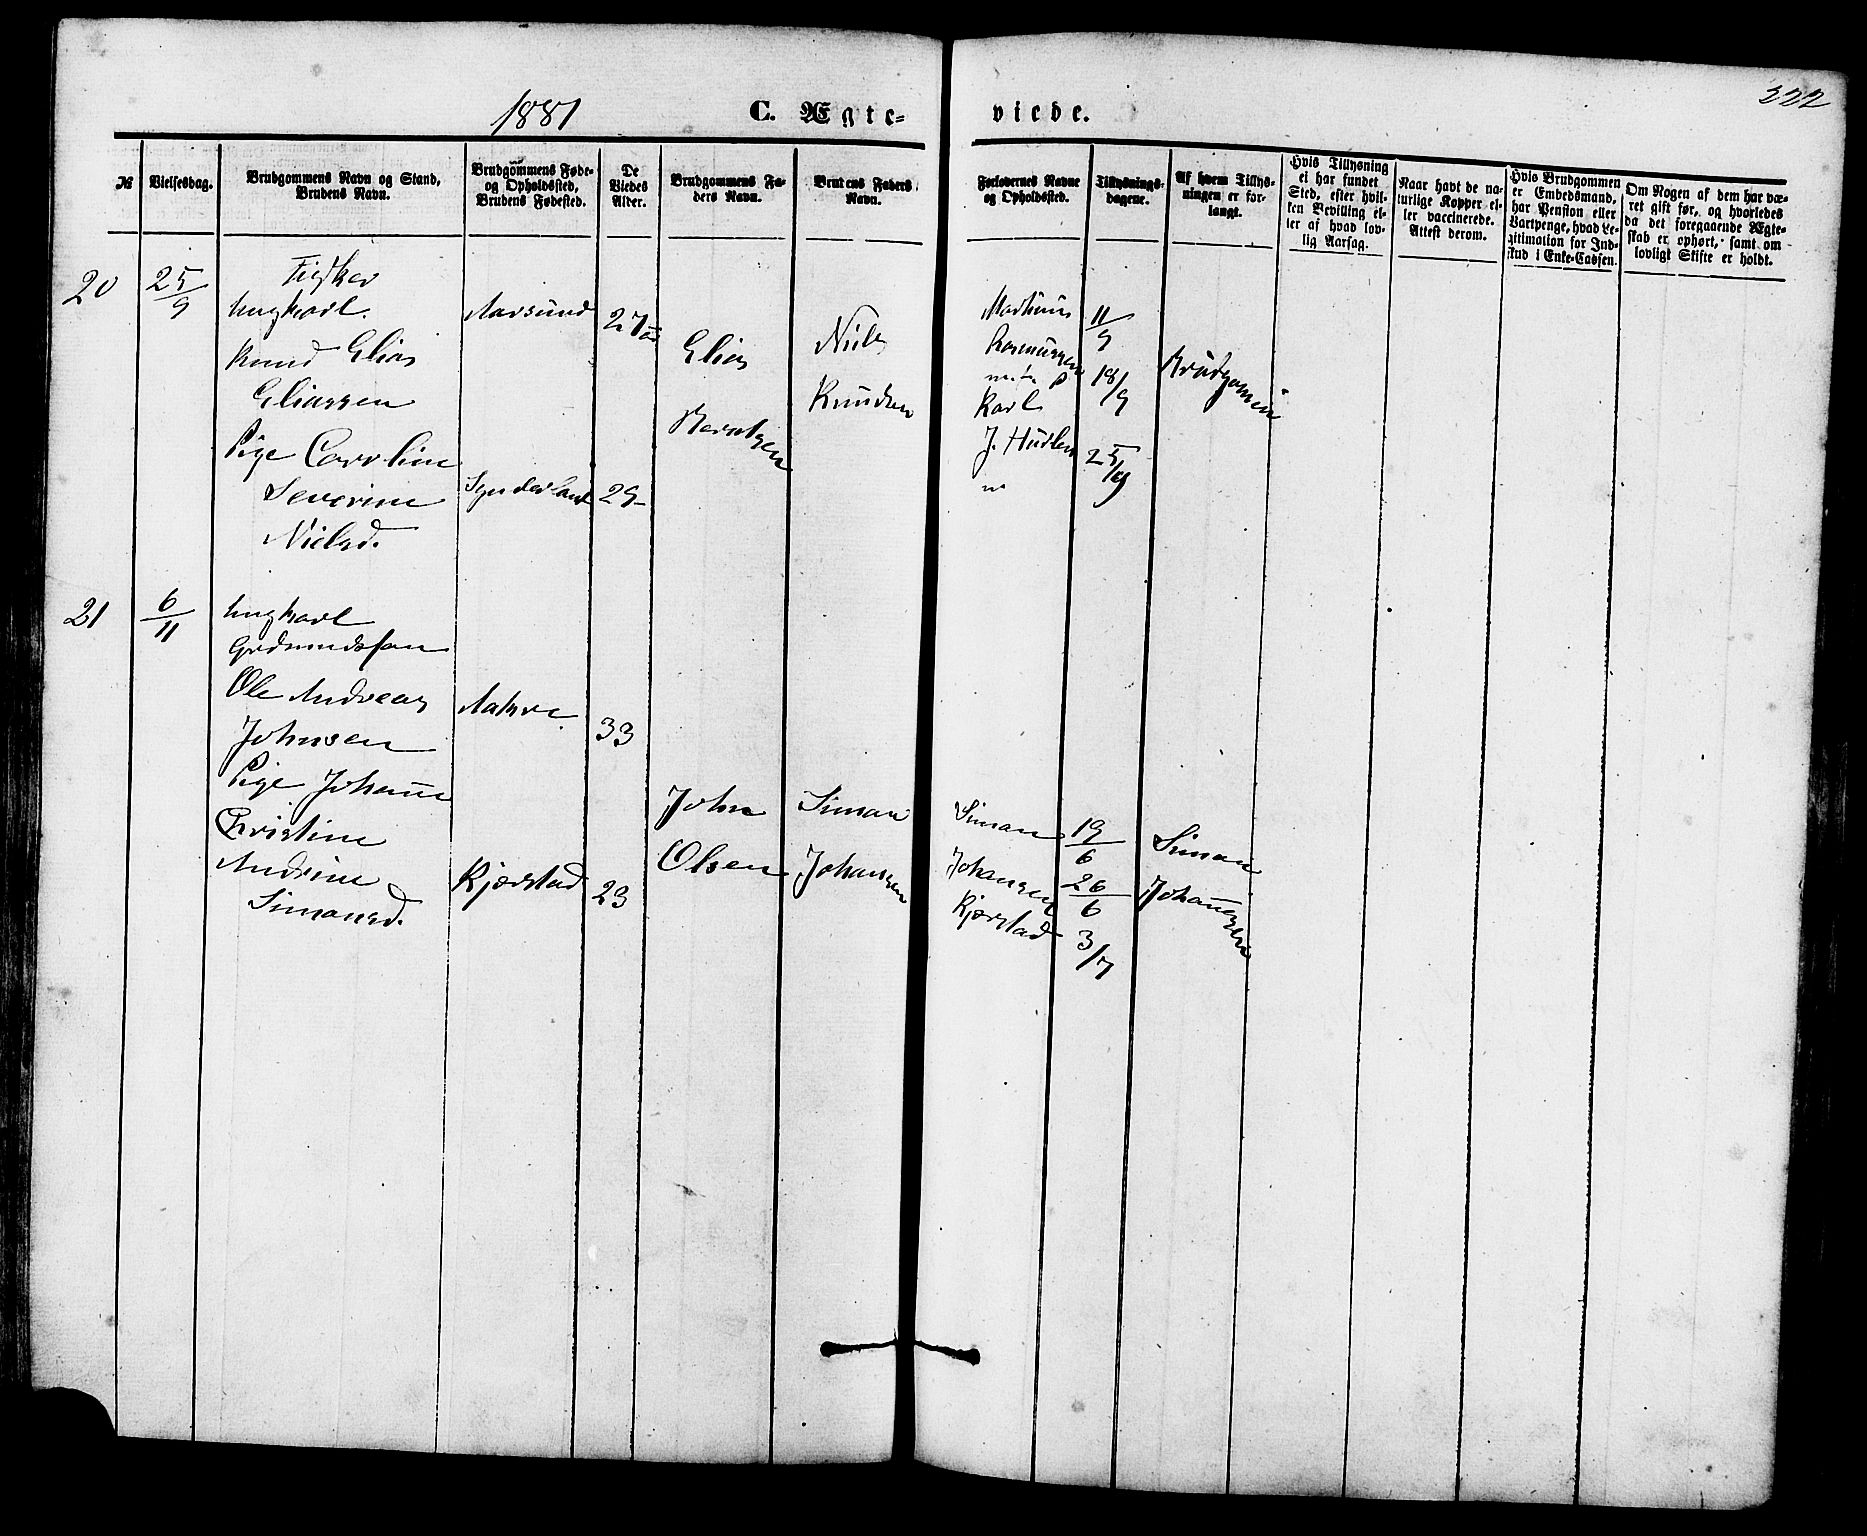 1881
C. Ægte-
viede.
222
№
Vielsesdag.
Brudgommens Navn og Stand,
Brudens Navn.
Brudgommens Føde-
og Opholdssted,
Brudens Fødested.
De
Viedes
Alder.
Brudgommens Fa-
ders Navn.
Brudens Faders
Navn.
Forlovernes Navne
og Opholdssted.
Tillysnings-
dagene.
Af hvem Tillys-
ningen er for-
langt.
Hvis Tillysning
ei har fundet
Sted, efter hvil-
ken Bevilling el-
ler af hvad lov-
lig Aarsag.
Naar havt de na-
turlige Kopper el-
ler vaccinerede.
Attest derom.
Hvis Brudgommen
er Embedsmand,
har Pension eller
Vartpenge, hvad Le-
gitimation for Ind-
skud i Enke-Cassen.
Om Nogen af dem har væ-
ret gift før, og hvorledes
da det foregaaende Ægte-
skab er ophørt, samt om
lovligt Skifte er holdt.
20
25/9
Fisker
Ungkarl
Knud Elias
Eliassen
Pige Caroline
Severine
Nielsd.
Aarsund
Synderland
27
29
Elias
Berntsen
Niels
Knudsen
Rasmussen
Karl
J.
11/9
18/9
25/9
Brudgommen
21
6/11
Ungkarl
Gudmundssøn
Ole Andreas
Johnsen
Pige Johanne
Christine
Andrine
Simonsd.
Kjørstad
33
23
John
Olsen
Simon
Johansen
Simon
Johansen
Kjørstad
19/6
26/6
3/7
Simon
Johannesen